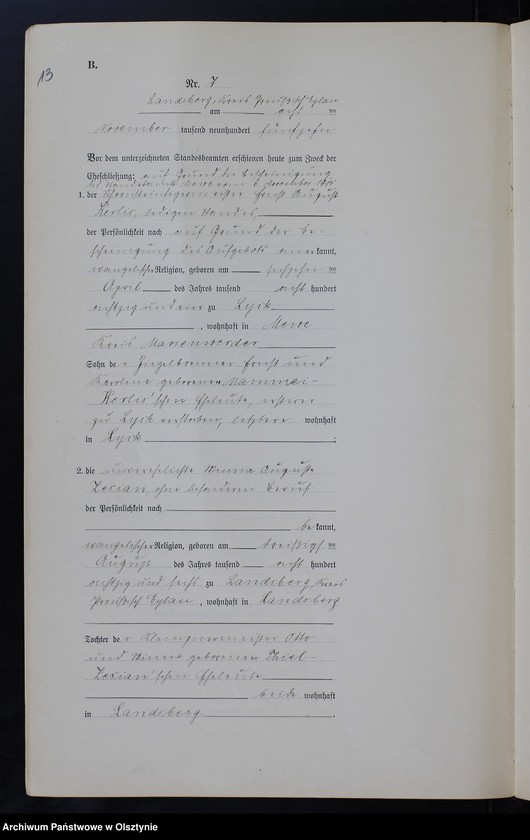 13
B.
Nr. 7
Landsberg, Kreis Preußisch Eylau
am acht ten
November tausend neunhundert fünfzehn
Vor dem unterzeichneten Standesbeamten erschienen heute zum Zweck der
Eheschließung: auf Grund der Bescheinigung
des Standesamts Mewe vom 6. November 1915
1. der Schornsteinfegermeister Ernst August
Kerlis, ledigen Standes,
der Persönlichkeit nach auf Grund der Be-
scheinigung des Aufgebots anerkannt,
evangelischer Religion, geboren am sechzehn ten
April des Jahres tausend acht hundert
achtzig und vier zu Lyck
, wohnhaft in Mewe
Kreis Marienwerder
Sohn der Ernst und
Karoline geborenen
Kerlis'schen Eheleute, ersterer
zu Lyck verstorben, letztere wohnhaft
in Lyck ;
2. die unverehelichte Minna Auguste
Lexian, ohne besonderen Beruf
der Persönlichkeit nach
be kannt,
evangelischer Religion, geboren am dreißigsten
August des Jahres tausend acht hundert
achtzig und sechs zu Landsberg, Kreis
Preußisch Eylau , wohnhaft in Landsberg
Tochter der Klempnermeister Otto
und Minna geborenen Thiel-
Lexian'schen Eheleute
beide wohnhaft
in Landsberg .
Archiwum Państwowe w Olsztynie